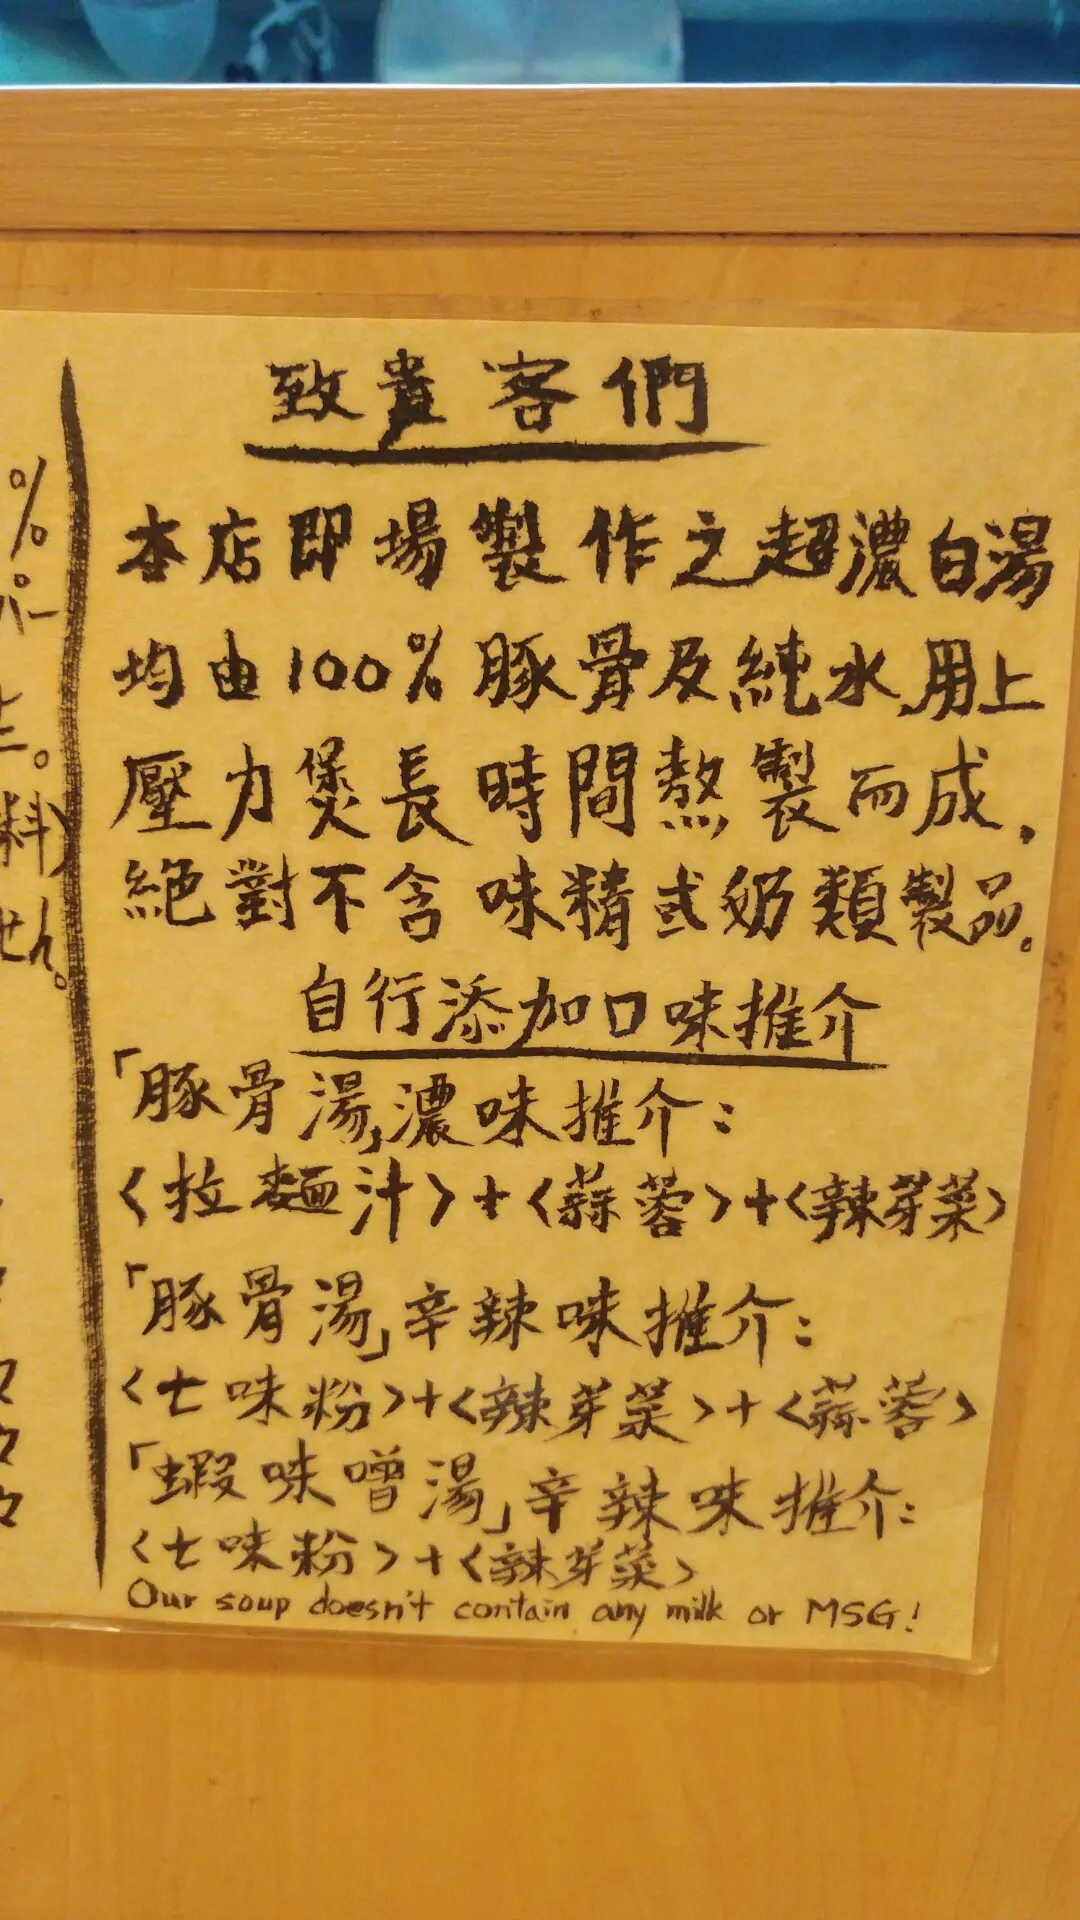 致貴客們
本店即場製作之超濃白湯
均由100%豚骨及純水,用上
壓力煲長時間熬製而成,
絕對不含味精或奶類製品。
自行添加口味推介
「豚骨湯」濃味推介:
〈拉麵汁〉+〈蒜蓉〉+〈辣芽菜〉
「豚骨湯」辛辣味推介:
〈七味粉〉+〈辣芽菜〉+〈蒜蓉〉
「蝦味噌湯」辛辣味推介:
〈七味粉〉+〈辣芽菜〉
Our soup doesn't contain any milk or MSG!
%
パー
。
料)
せん。